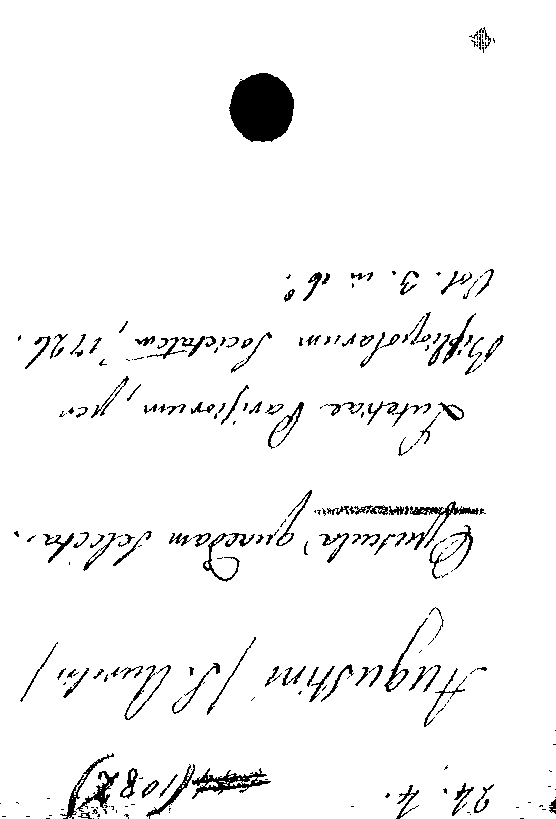 24. 4. (1082)
Augustini (S. Aurelii)
Opuscula quaedam selecta.
Lutetiae Parisiorum, per
Bibliopolarum Societatem, 1726.
Vol. 3. in 16°.